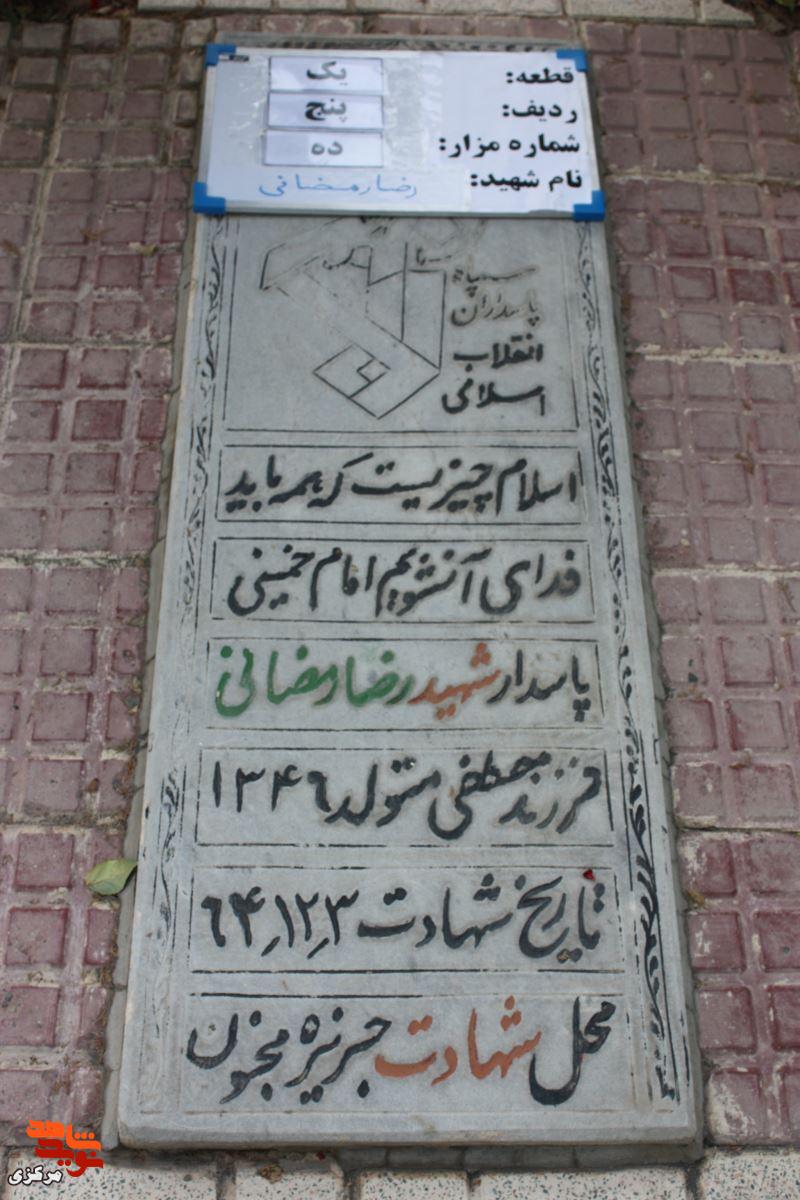 قطعه: یک
ردیف: پنج
شماره مزار: ده
نام شهید: رضا رمضانی
سپاه
پاسداران
انقلاب
اسلامی
اسلام چیزیست که همه باید
فدای آنشویم امام خمینی
پاسدار شهید رضا رمضانی
فرزند مصطفی متولد ۱۳۴۶
تاریخ شهادت ۶۴٫۱۲٫۳
محل شهادت جزیره مجنون
نوید شاهد
مرکزی